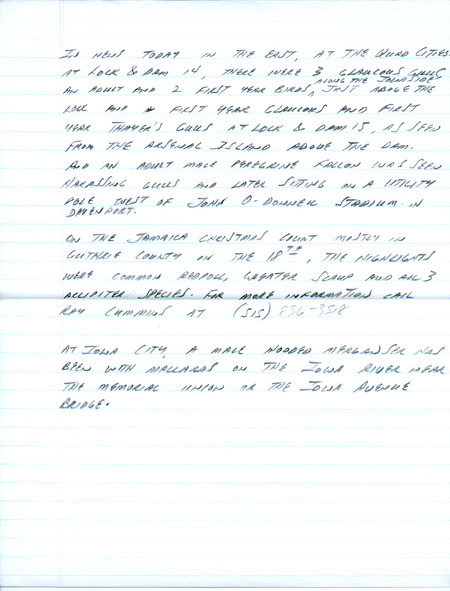 IN NEWS TODAY IN THE EAST, AT THE QUAD CITIES
AT LOCK & DAM 14, THERE WERE 3 GLAUCOUS GULLS
ALONG THE IOWA SIDE,
AN ADULT AND 2 FIRST YEAR BIRDS, JUST ABOVE THE
LOCK AND A FIRST YEAR GLAUCOUS AND FIRST
YEAR THAYER'S GULLS AT LOCK & DAM 15, AS SEEN
FROM THE ARSENAL ISLAND ABOVE THE DAM.
AND AN ADULT MALE PEREGRINE FALCON WAS SEEN
HARASSING GULLS AND LATER SITTING ON A UTILITY
POLE WEST OF JOHN O-DONNELL STADIUM IN
DAVENPORT.
ON THE JAMAICA CHRISTMAS COUNT MOSTLY IN
GUTHRIE COUNTY ON THE 18TH, THE HIGHLIGHTS
WERE COMMON REDPOLL, GREATER SCAUP AND ALL 3
ACCIPITER SPECIES. FOR MORE INFORMATION CALL
RAY CUMMINS AT (515) 836-3518
AT IOWA CITY, A MALE HOODED MERGANSER HAS
BEEN WITH MALLARDS ON THE IOWA RIVER NEAR
THE MEMORIAL UNION OR THE IOWA AVENUE
BRIDGE.